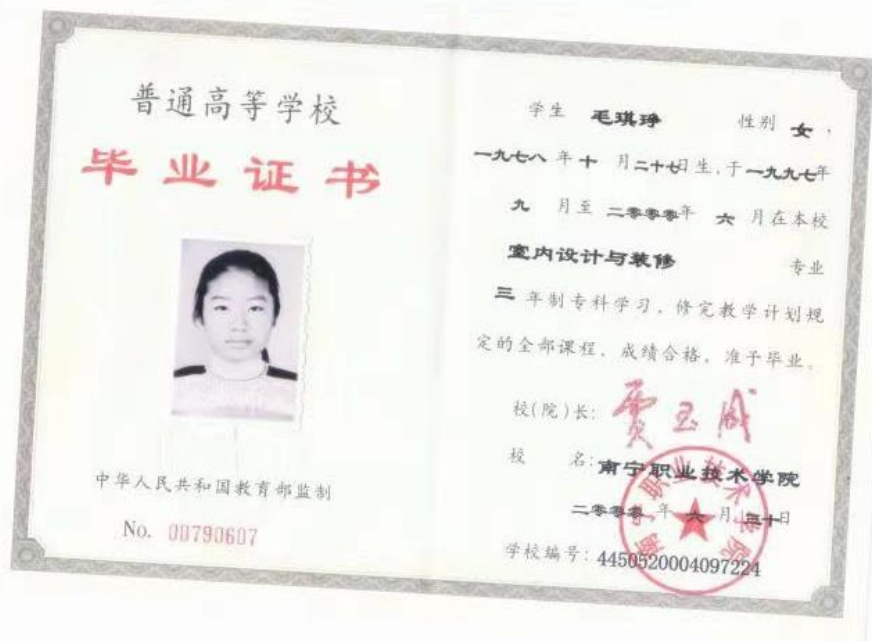 普通高等学校
毕业证书
中华人民共和国教育部监制
No. 00790607
学生 毛琪琤 性别 女，
一九七八 年 十 月 二十七日生，于 一九九七年
九 月至 二零零零年 六 月在本校
室内设计与装修 专业
三 年制专科学习，修完教学计划规
定的全部课程，成绩合格，准予毕业。
校(院)长: 贾玉成
校 名: 南宁职业技术学院
二零零零 年 六 月 三十日
学校编号: 4450520004097224
南宁职业技术学院